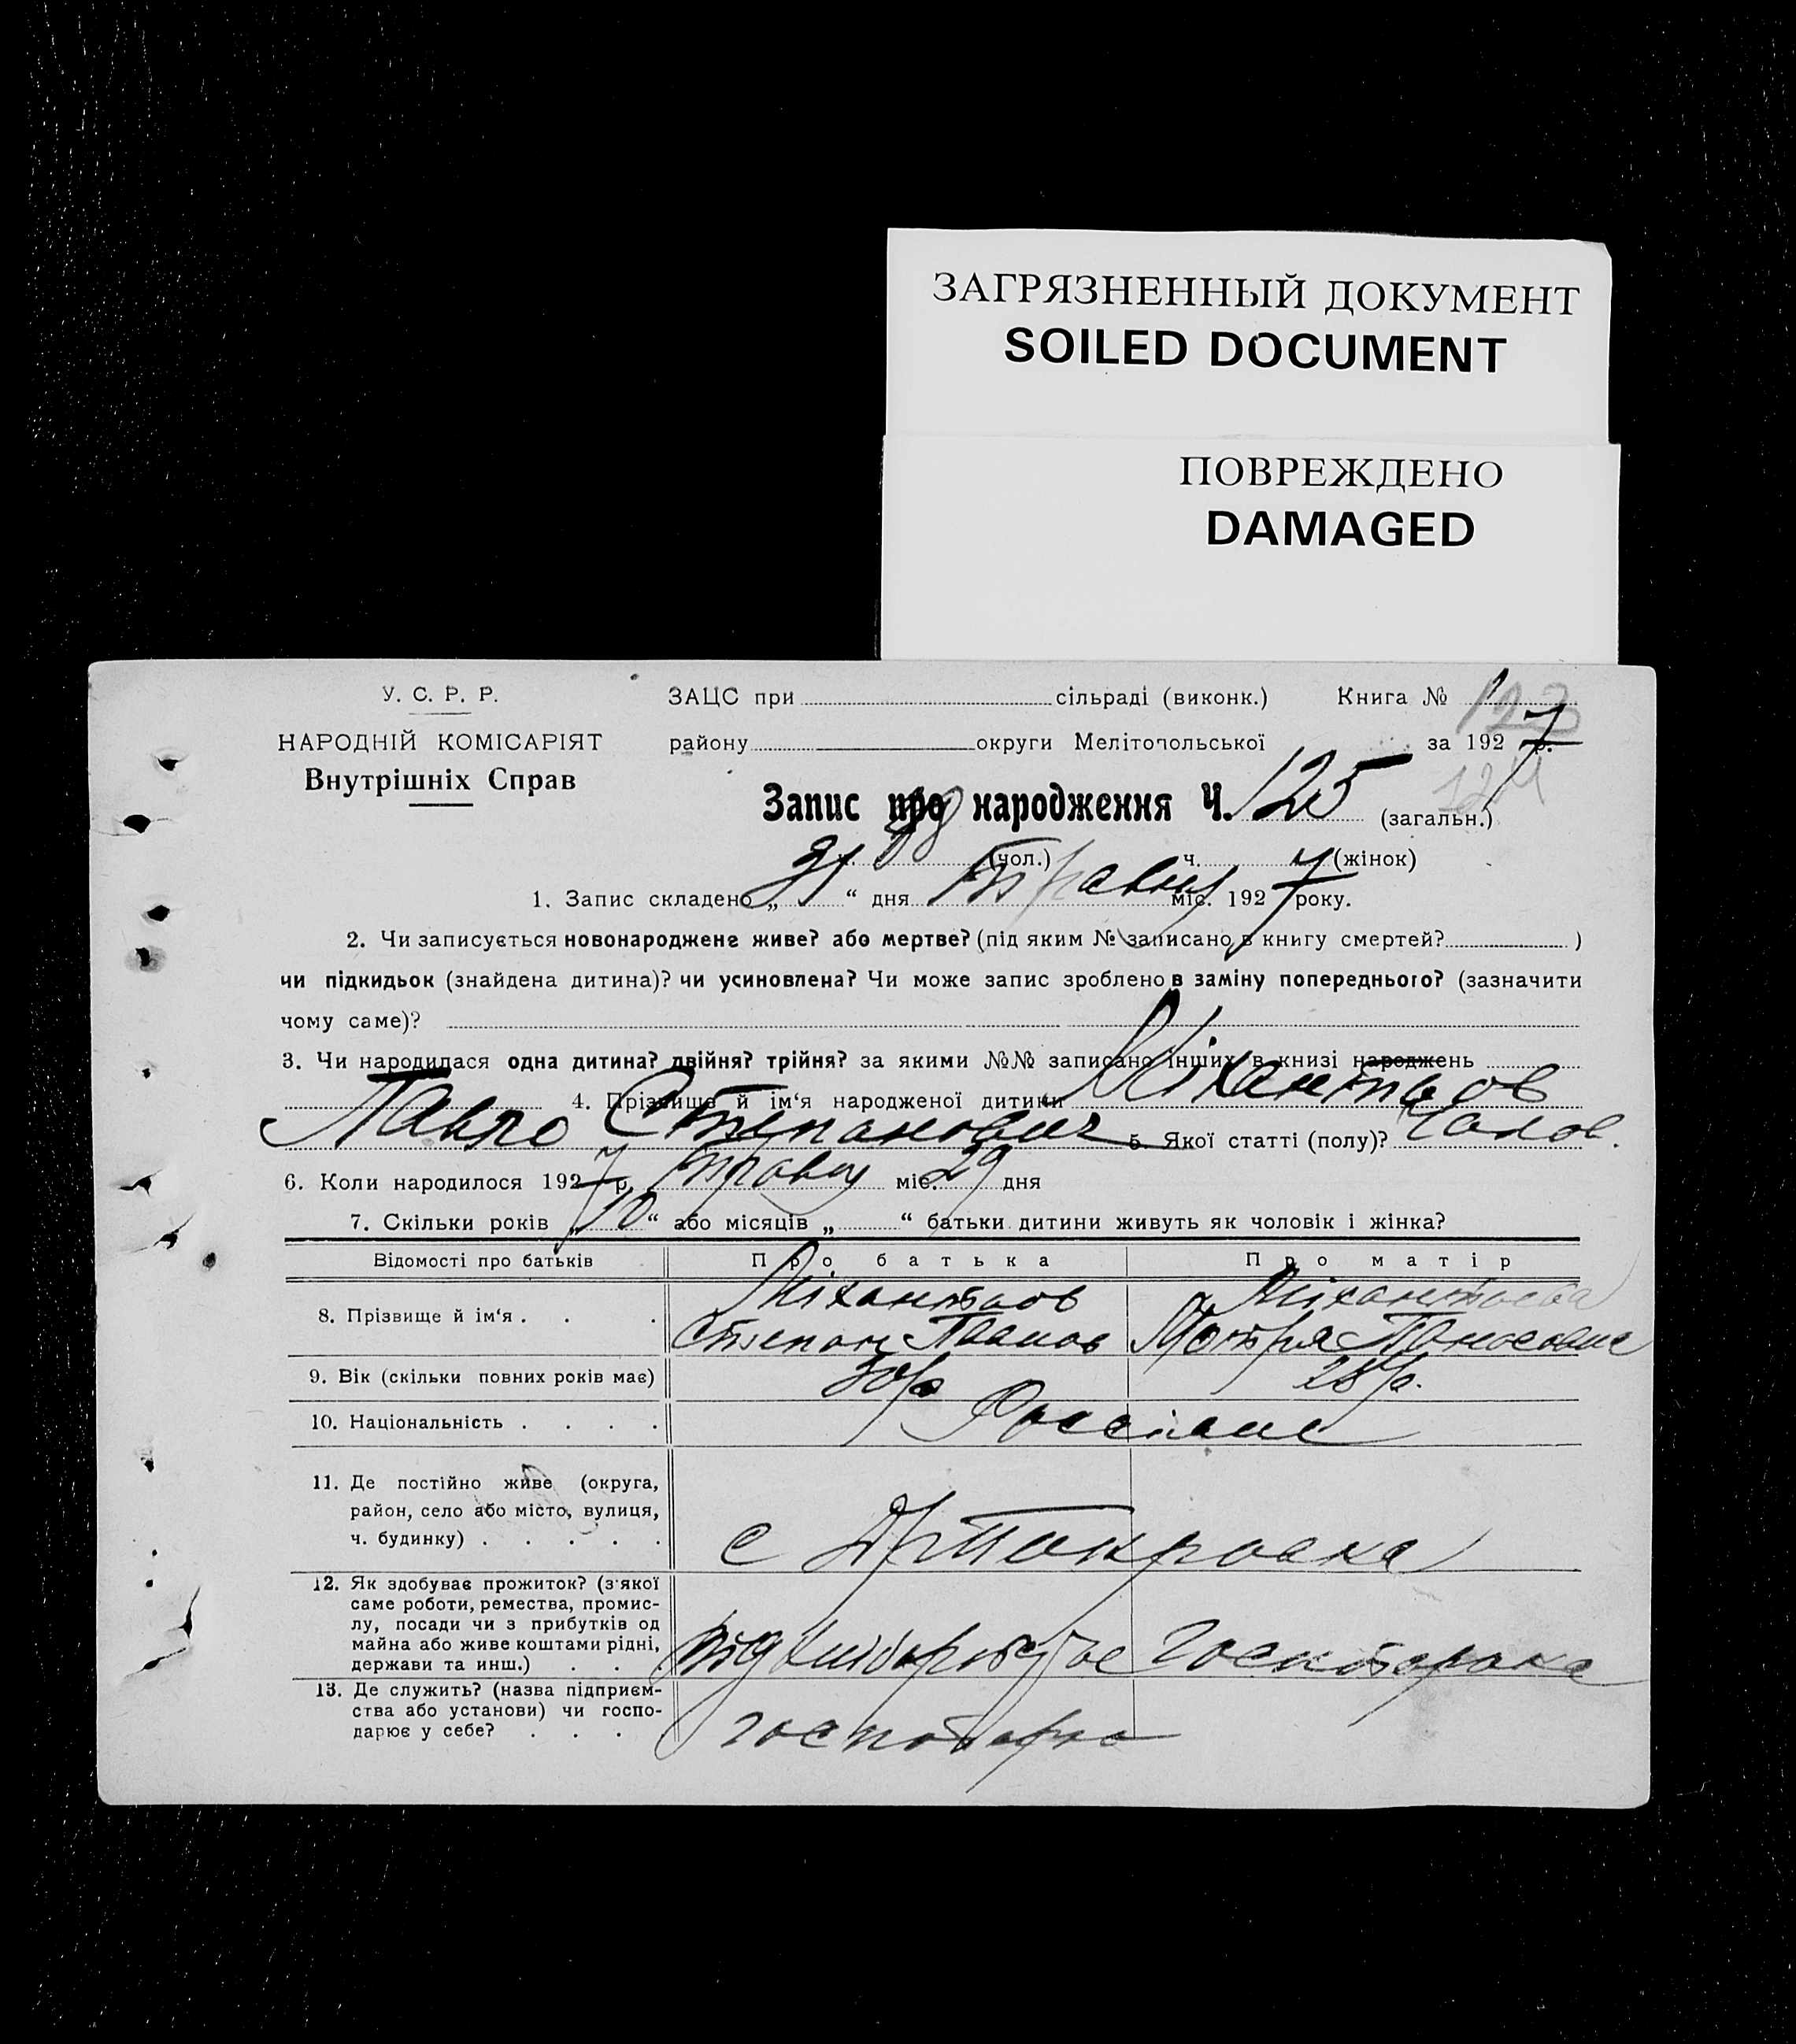 ЗАГРЯЗНЕННЫЙ ДОКУМЕНТ
SOILED DOCUMENT
ПОВРЕЖДЕНО
DAMAGED
У. С. Р. Р.
НАРОДНІЙ КОМІСАРІЯТ
Внутрішніх Справ
ЗАЦС при сільраді (виконк.) Книга № 1
району округи Мелітопольської за 1927 р.
Запис про народження Ч. 125 (загальн.)
ч. 88 (чол.) ч. (жінок)
1. Запис складено „31“ дня Травня міс. 1927 року.
2. Чи записується новонароджене живе? або мертве? (під яким № записано в книгу смертей? )
чи підкидьок (знайдена дитина)? чи усиновлена? Чи може запис зроблено в заміну попереднього? (зазначити
чому саме)?
3. Чи народилася одна дитина? двійня? трійня? за якими №№ записано інших в книзі народжень
4. Прізвище й ім‘я народженої дитини
Павло Степанович 5. Якої статті (полу)? Чолов.
6. Коли народилося 1927 р. травня міс. 29 дня
7. Скільки років „10“ або місяців „ “ батьки дитини живуть як чоловік і жінка?
Відомості про батьків Про батька Про матір
8. Прізвище й ім‘я . . .
Степан Мотря
9. Вік (скільки повних років має) 30 р 28 р.
10. Національність . . . . Россіане
11. Де постійно живе (округа,
район, село або місто, вулиця,
ч. будинку) . . . . .
с
12. Як здобуває прожиток? (з‘якої
саме роботи, ремества, промис-
лу, посади чи з прибутків од
майна або живе коштами рідні,
держави та инш.) . . .
від
13. Де служить? (назва підприєм-
ства або установи) чи госпо-
дарює у себе? . . .